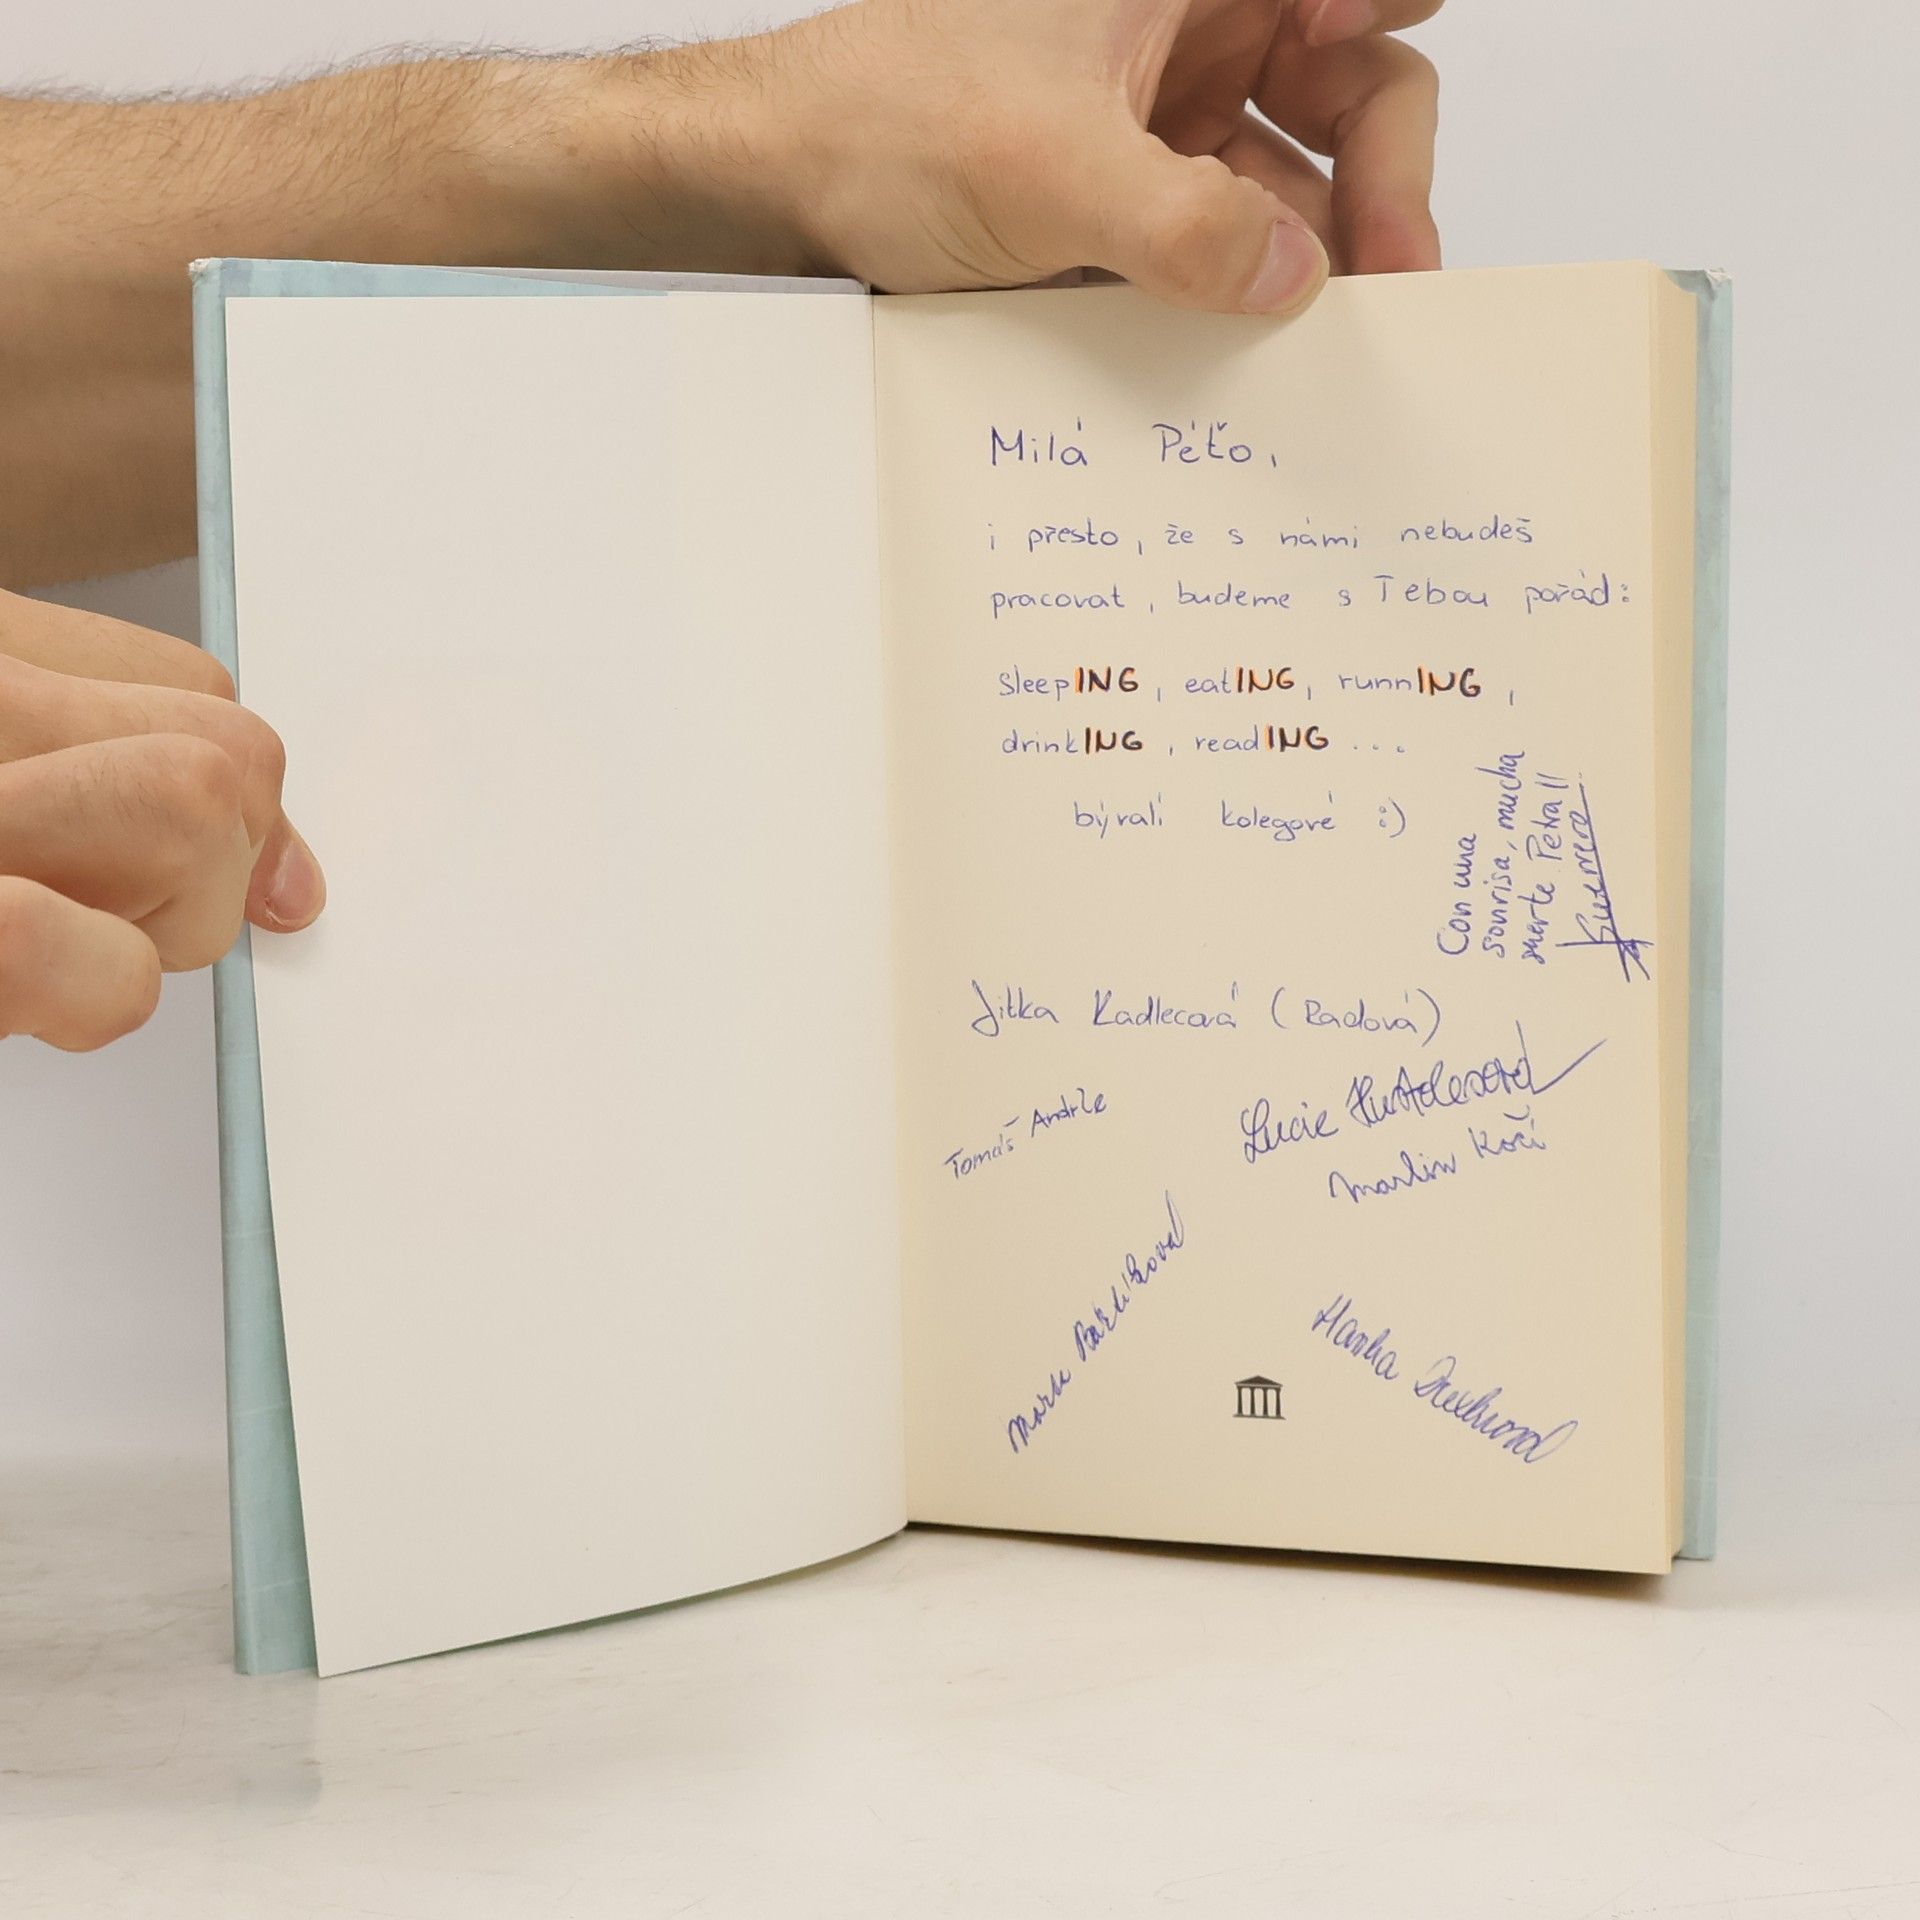 Milá Péťo,
i přesto, že s námi nebudeš
pracovat, budeme s Tebou pořád:
sleepING, eatING, runnING,
drinkING, readING ...
bývalí kolegové :)
Con una
sonrisa, mucha
suerte Petra!!
Jitka Kadlecová (Radová)
Tomáš Andrle
Lucie
Martin Kočí
Hanka